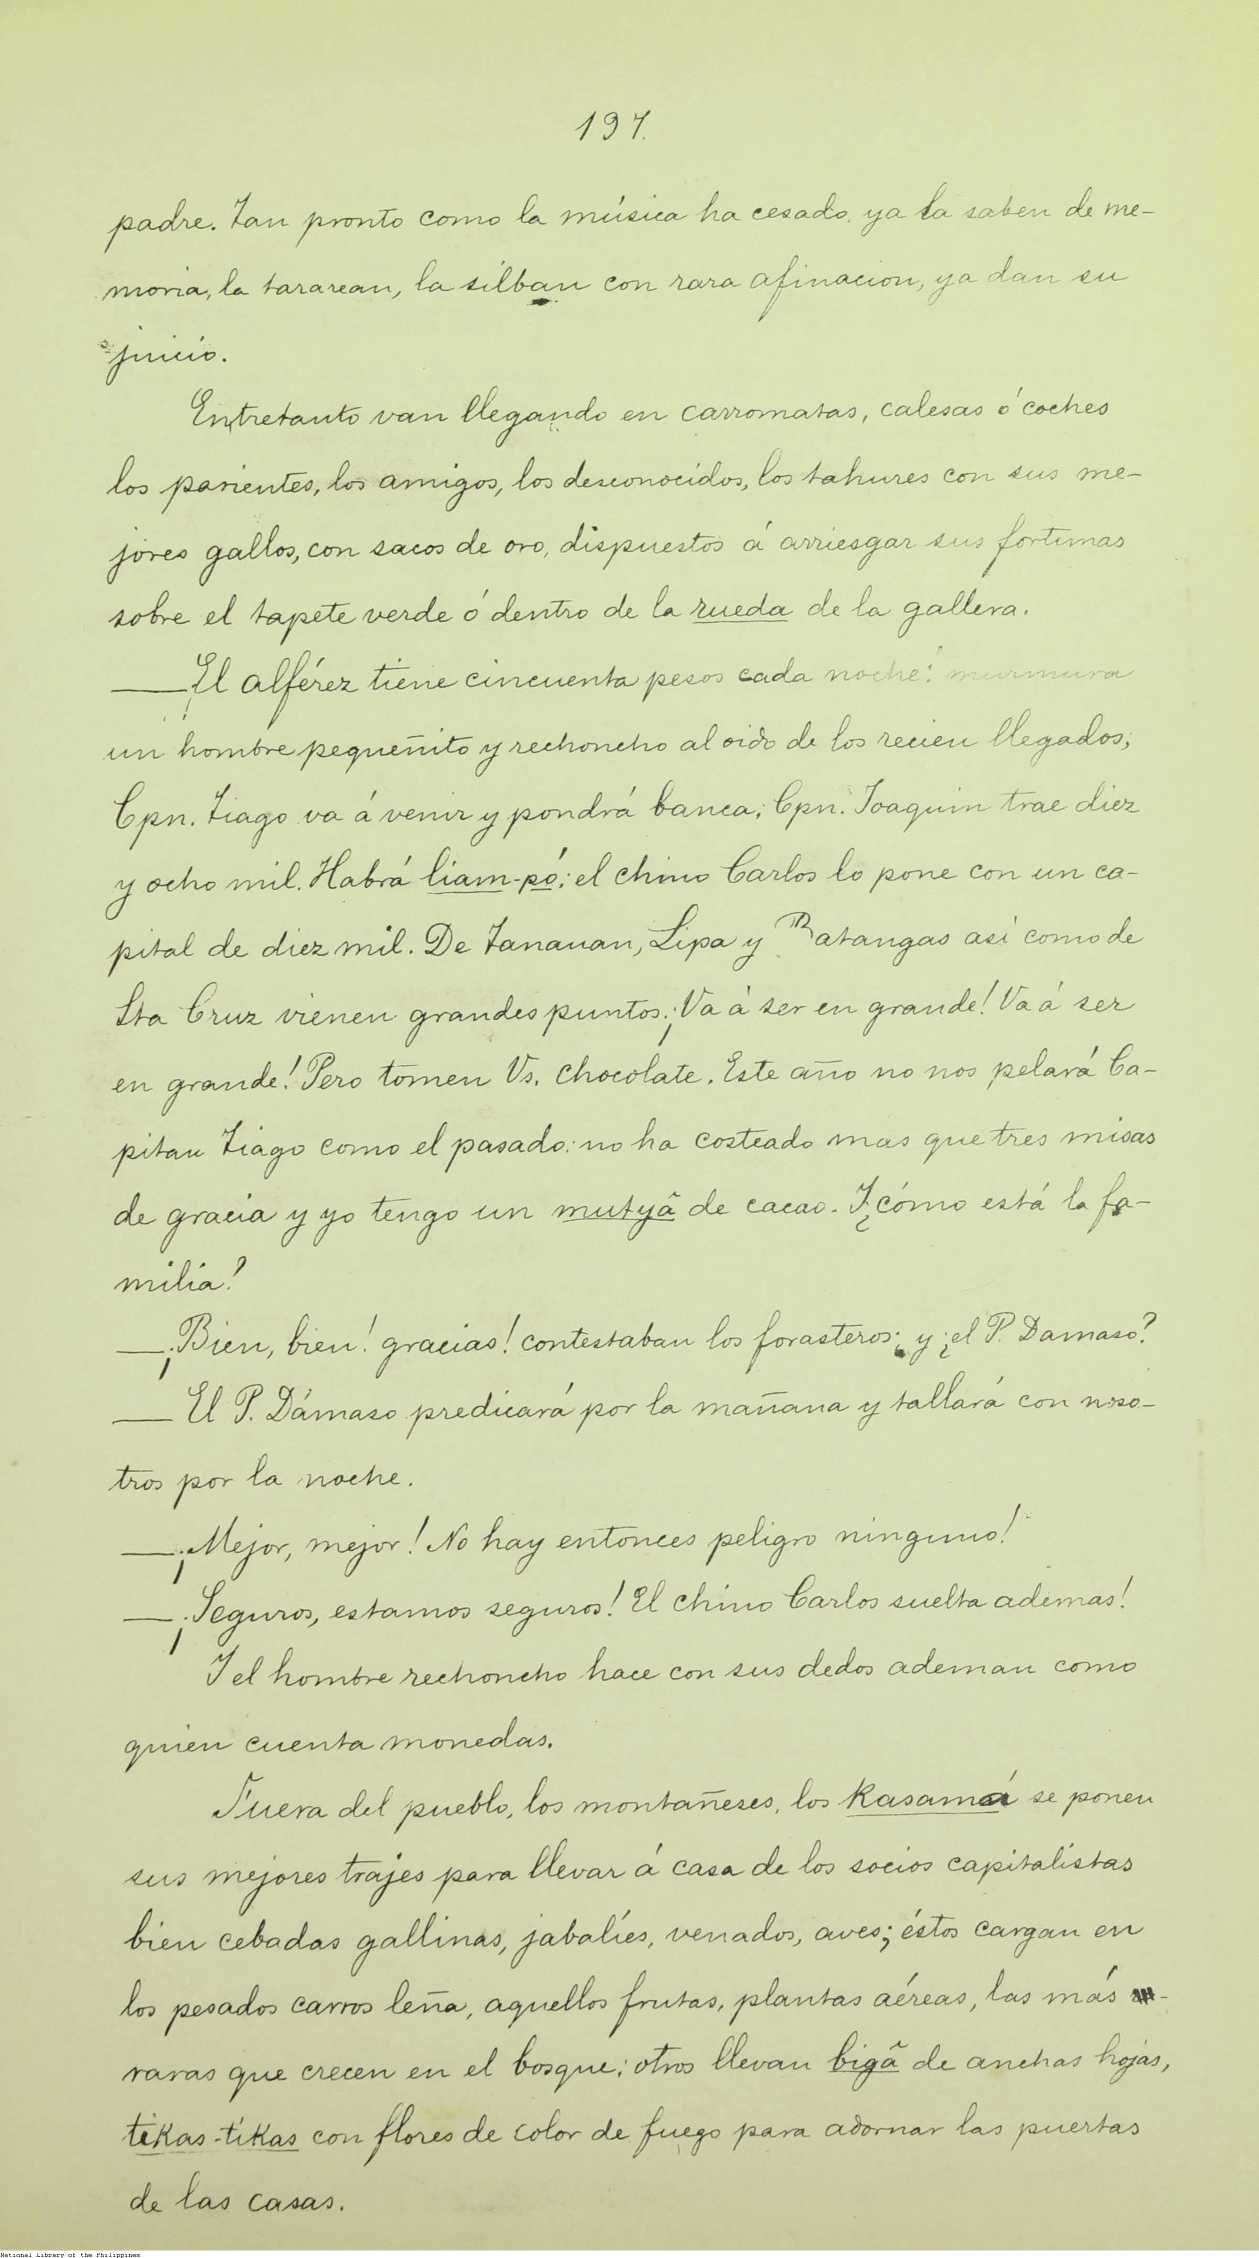 197.
padre. Tan pronto como la música ha cesado, ya la saben de me-
moria, la tararean, la silban con rara afinacion, ya dan su
juicio.
Entretanto van llegando en carromatas, calesas ó coches
los parientes, los amigos, los desconocidos, los tahures con sus me-
jores gallos, con sacos de oro, dispuestos á arriesgar sus fortunas
sobre el tapete verde ó dentro de la rueda de la gallera.
—¡El alférez tiene cincuenta pesos cada noche! murmura
un hombre pequeñito y rechoncho al oido de los recien llegados;
Cpn. Tiago va á venir y pondrá banca; Cpn. Joaquin trae diez
y ocho mil. Habrá liam-pó: el chino Carlos lo pone con un ca-
pital de diez mil. De Tanauan, Lipa y Batangas asi como de
Sta Cruz vienen grandes puntos. ¡Va á ser en grande! Va á ser
en grande! Pero tomen Vs. chocolate. Este año no nos pelará Ca-
pitan Tiago como el pasado: no ha costeado mas que tres misas
de gracia y yo tengo un mutyâ de cacao. Y ¿cómo está la fa-
milia?
—¡Bien, bien! gracias! contestaban los forasteros; y ¿el P. Damaso?
— El P. Dámaso predicará por la mañana y tallará con noso-
tros por la noche.
—¡Mejor, mejor! No hay entonces peligro ninguno!
—¡Seguros, estamos seguros! El chino Carlos suelta ademas!
Y el hombre rechoncho hace con sus dedos ademan como
quien cuenta monedas.
Fuera del pueblo, los montañeses, los kasamá se ponen
sus mejores trajes para llevar á casa de los socios capitalistas
bien cebadas gallinas, jabalíes, venados, aves; éstos cargan en
los pesados carros leña, aquellos frutas, plantas aéreas, las más
raras que crecen en el bosque; otros llevan bigâ de anchas hojas,
tikas-tikas con flores de color de fuego para adornar las puertas
de las casas.
National Library of the Philippines